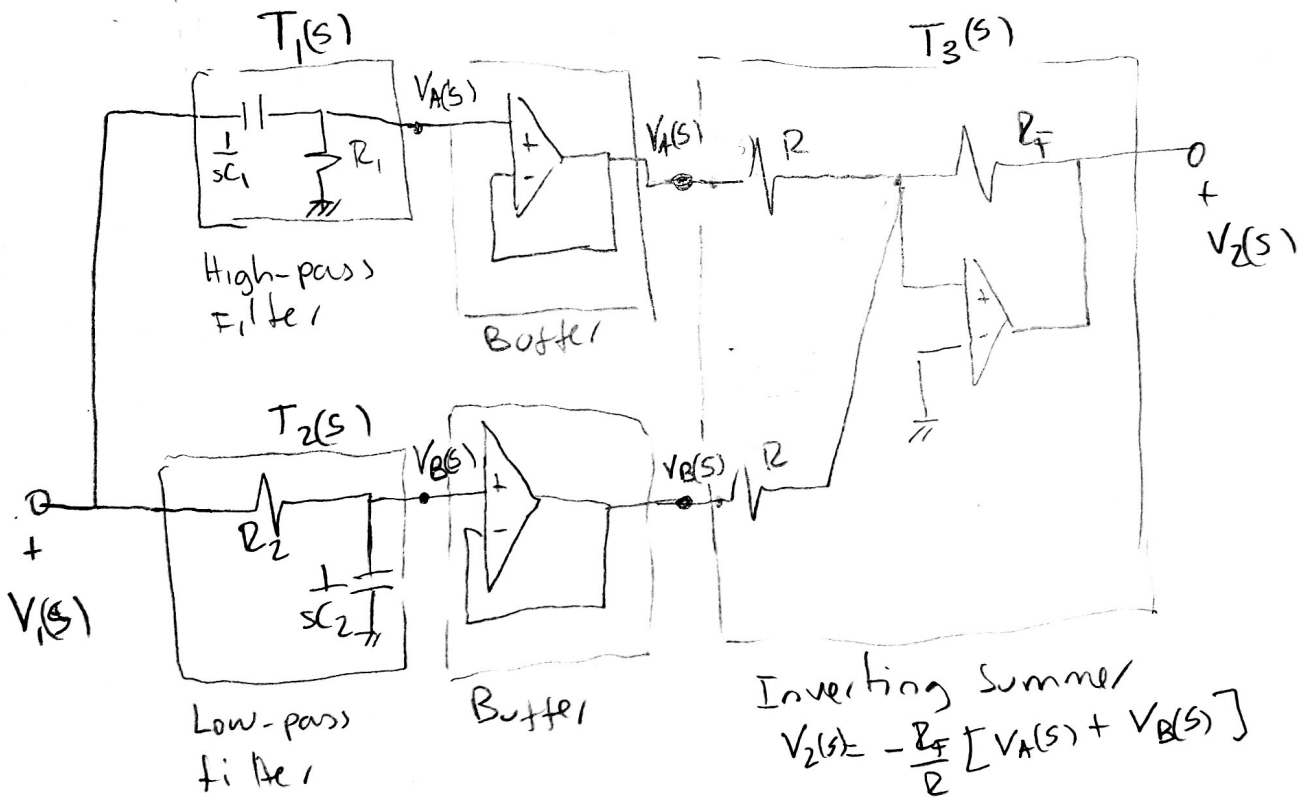 T₁(S)
T₃(S)
V_A(S)
V_A(S)
R
R_F
+
-
1/sC₁
R₁
+
V₂(S)
High-pass
Filter
Buffer
+
-
T₂(S)
V_B(S)
V_B(S)
R
+
-
R₂
1/sC₂
+
V₁(S)
Low-pass
filter
Buffer
Inverting Summer
V₂(s)= -R_F/R [V_A(S) + V_B(S)]